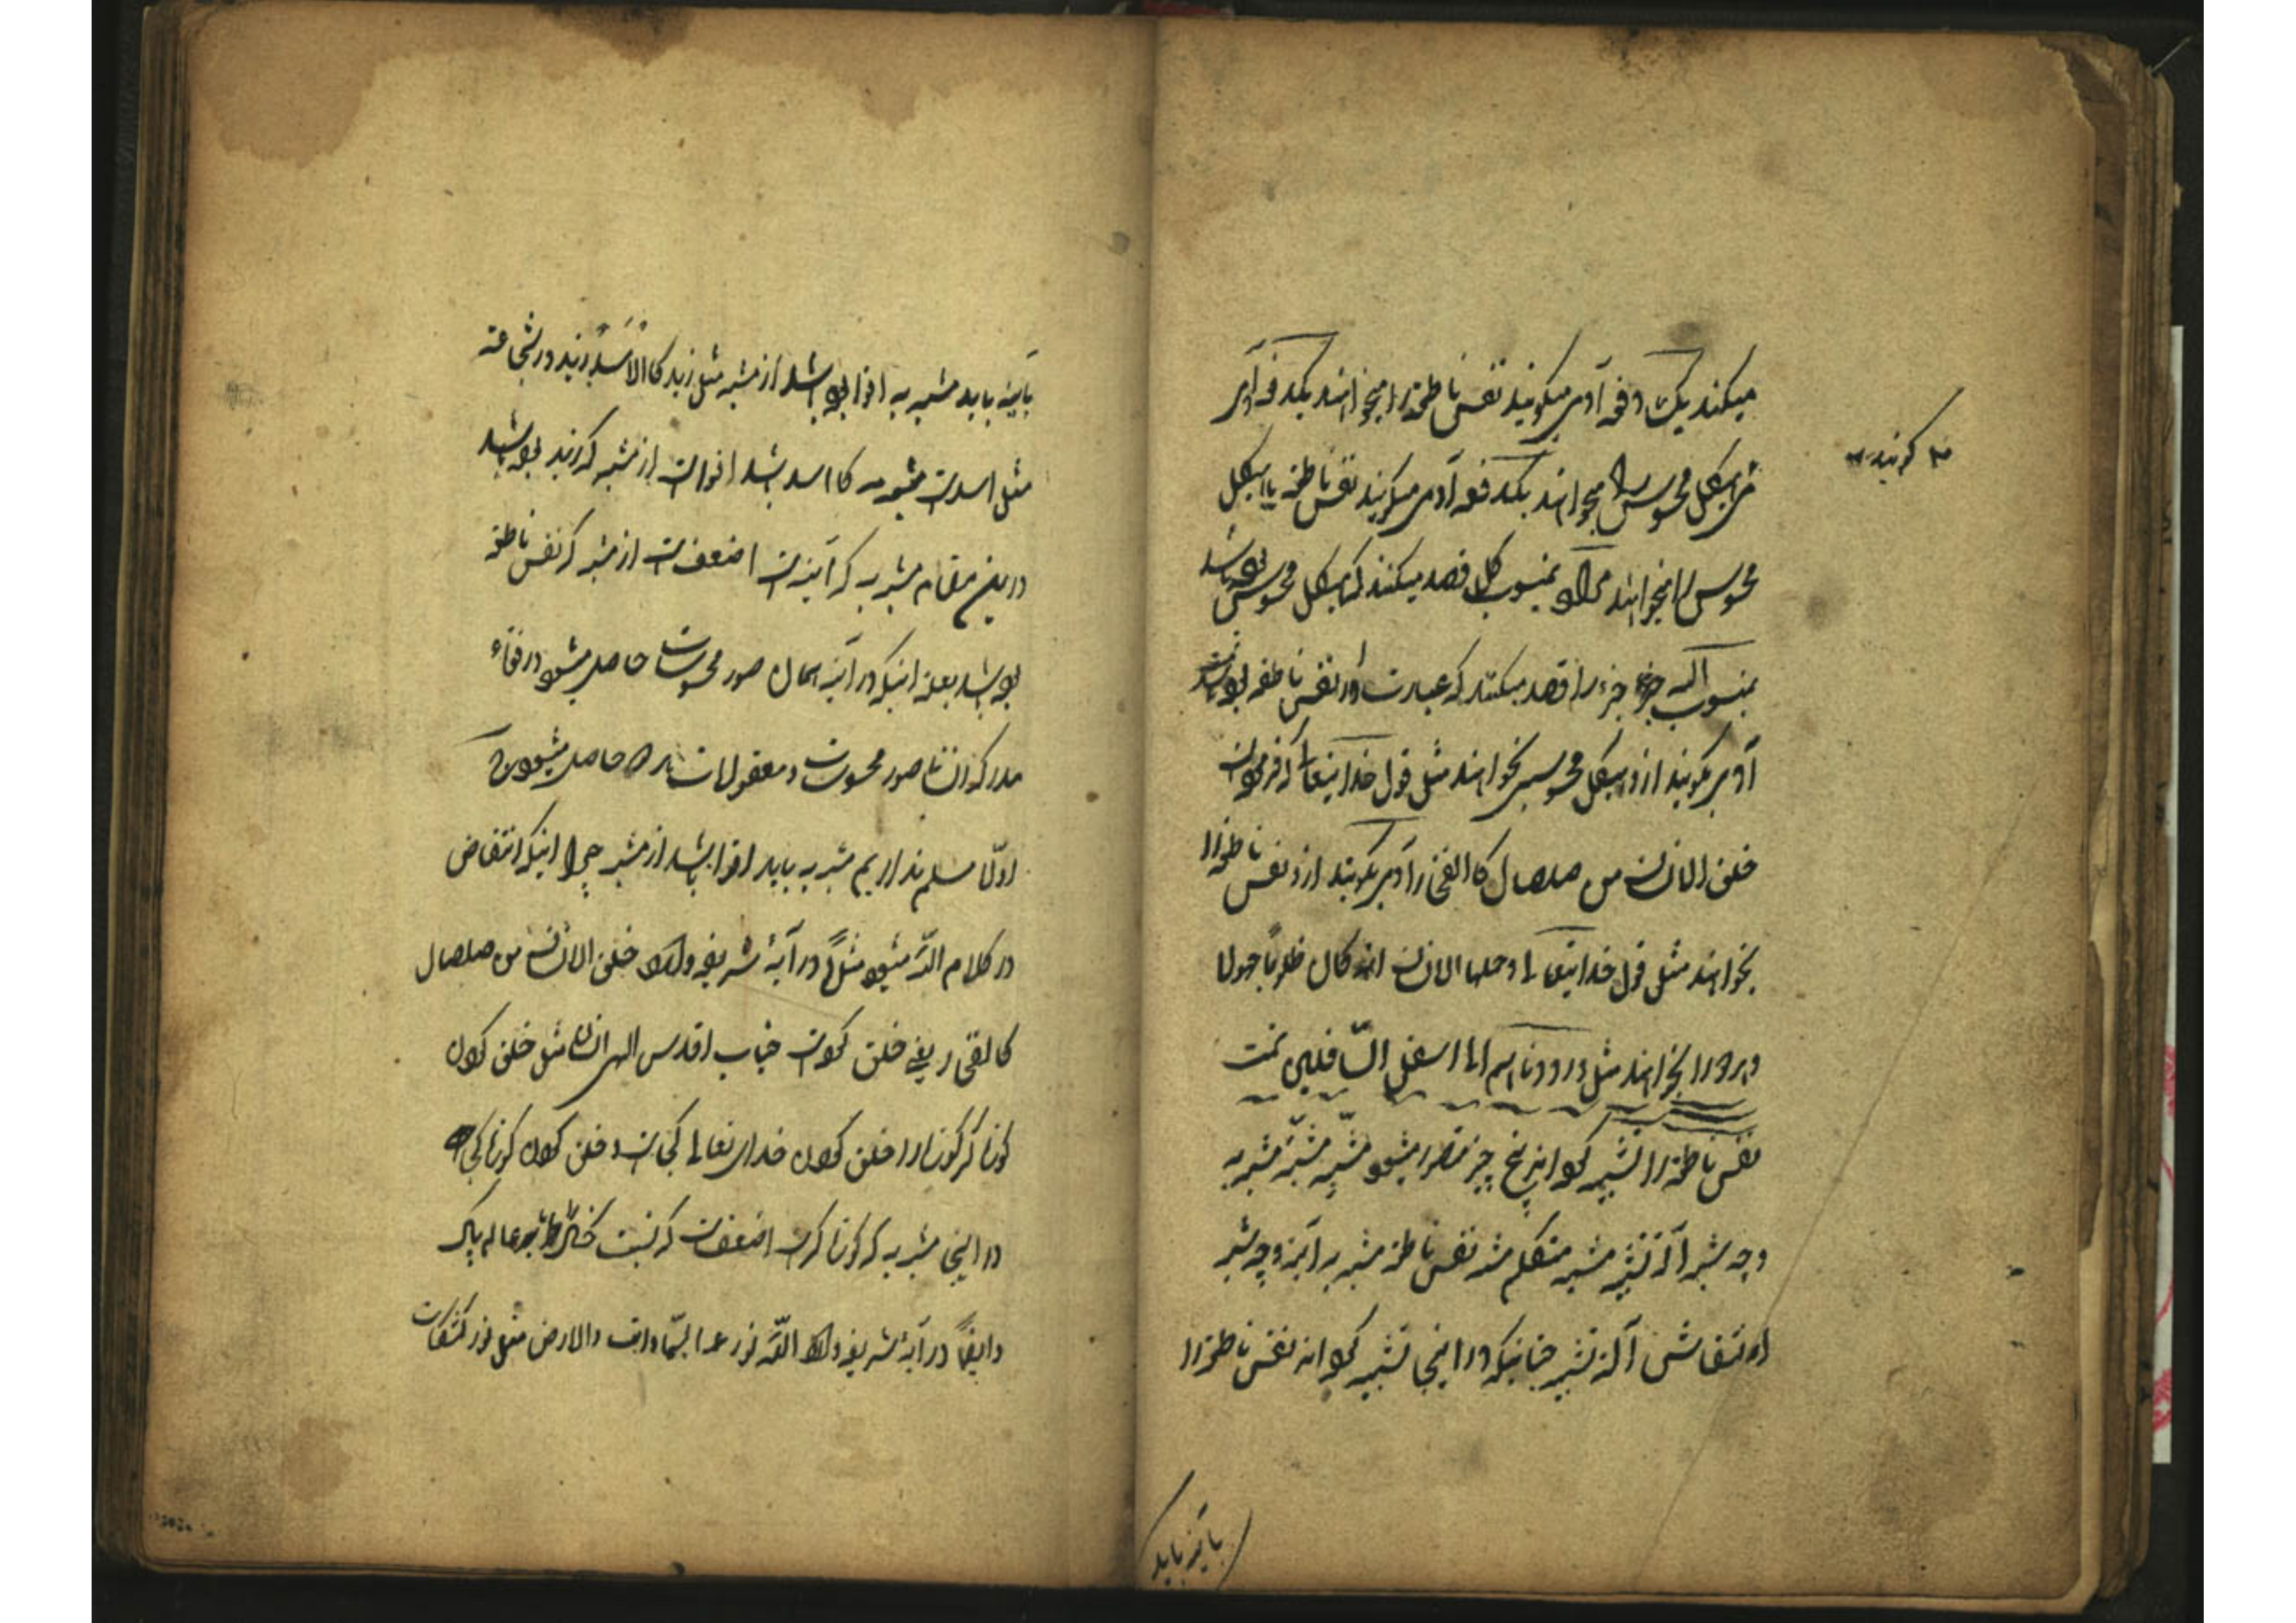 میکند یک دفه آدمی میکویند نفس ناطقه را میخواهند یکدفه آدمی
میکویند هیکل محسوس را میخواهند یکدفعه آدمی میکویند نفس ناطقه با هیکل
محسوس را میخواهند منسوب کل قصد میکنند که هیکل محسوس بوده باشد
منسوب جزء را قصد میکنند که عبارت از نفس ناطقه بوده باشد
آدمی بکویند ازو هیکل محسوس بخواهند مثل قول خدایتعالی که فرموده است
خلق الانسان من صلصال کالفخار آدمی بکویند ازو نفس ناطقه را
بخواهند مثل قول خدایتعالی و حملها الانسان انه کان ظلوما جهولا
و هردو را بخواهند مثل و رددناهم الی اسفل السافلین تمت
نفس ناطقه را تشبیه کرده اند پنج چیز متصور میشود مشبِّه مشبَّه مشبه به
وجه شبه آلة تشبیه مشبه متکلم مشبه نفس ناطقه مشبه به آینه وجه شبه
انتقاش آلة تشبیه چنانیکه در اینجا تشبیه کرده اند نفس ناطقه را
کویند
بآینه باید
بآینه باید مشبه به اقوا بوده باشد از مشبه مثل زید کالاسد زید در شجاعة
مثل اسد است مشبه به که اسد باشد اقوا است از مشبه که زید بوده باشد
درین مقام مشبه به که آینه است اضعف است از مشبه که نفس ناطقه
بوده باشد بعلة اینکه در آینه همان صور محسوسات حاصل میشود در قوّهٔ
مدرکه انسان صور محسوسات و معقولات هردو حاصل میشود
اوّلا مسلم نداریم مشبه به باید اقوا باشد از مشبه چرا اینکه انتقاض
در کلام الله میشود مثلاً در آیهٔ شریفه خلق الانسان من صلصال
کالفخار یعنی خلق کرده است جناب اقدس الهی انسان را مثل خلق کردن
کوزه کر کوزه را خلق کردن خدای تعالی کجاست و خلق کردن کوزه کجا
در اینجا مشبه به که کوزه کر است اضعف است که نسبت خاک را با عالم پاک
و ایضاً در آیهٔ شریفه الله نور السماوات والارض مثل نوره کمشکات